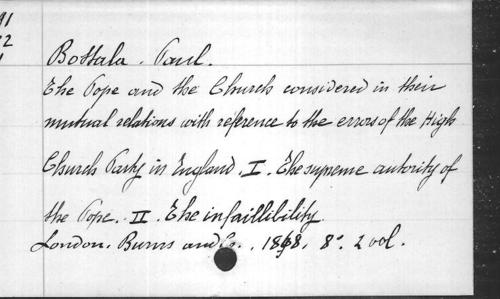 91
22
Bottala. Paul.
The Pope and the Church considered in their
mutual relations with reference to the errors of the High
Church Party in England. I. The supreme autority of
the Pope. II. The infaillibility.
London. Burns and Co., 1868. 8°. 2 vol.